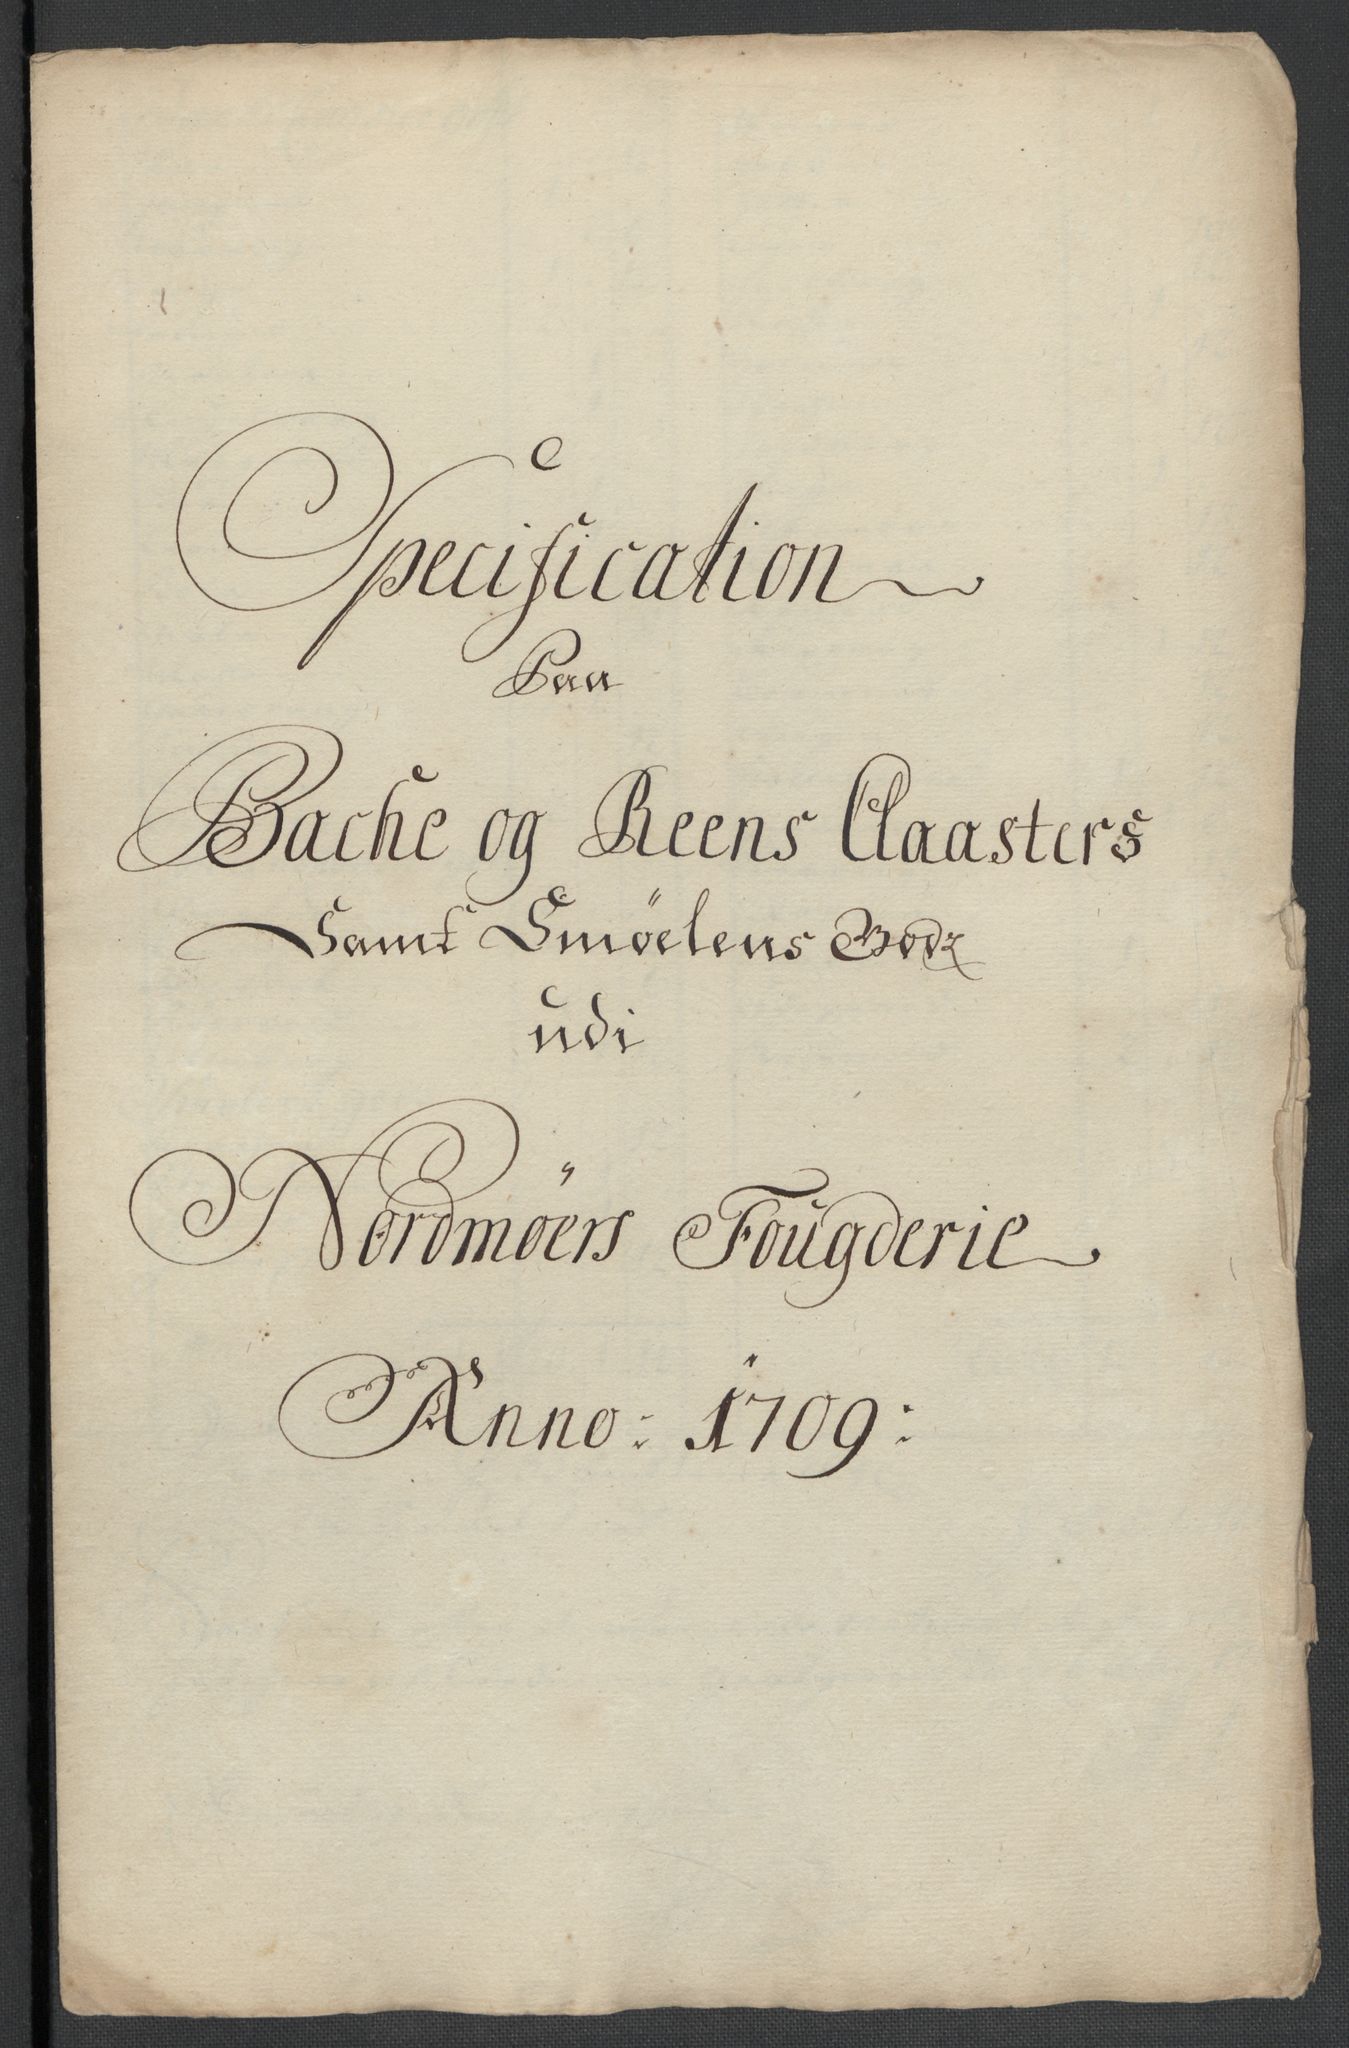 Specification
Paa
Bache og Reens Claasters
Samt Smöelens Godz
udi
Nordmöers Fougderie
Anno: 1709: